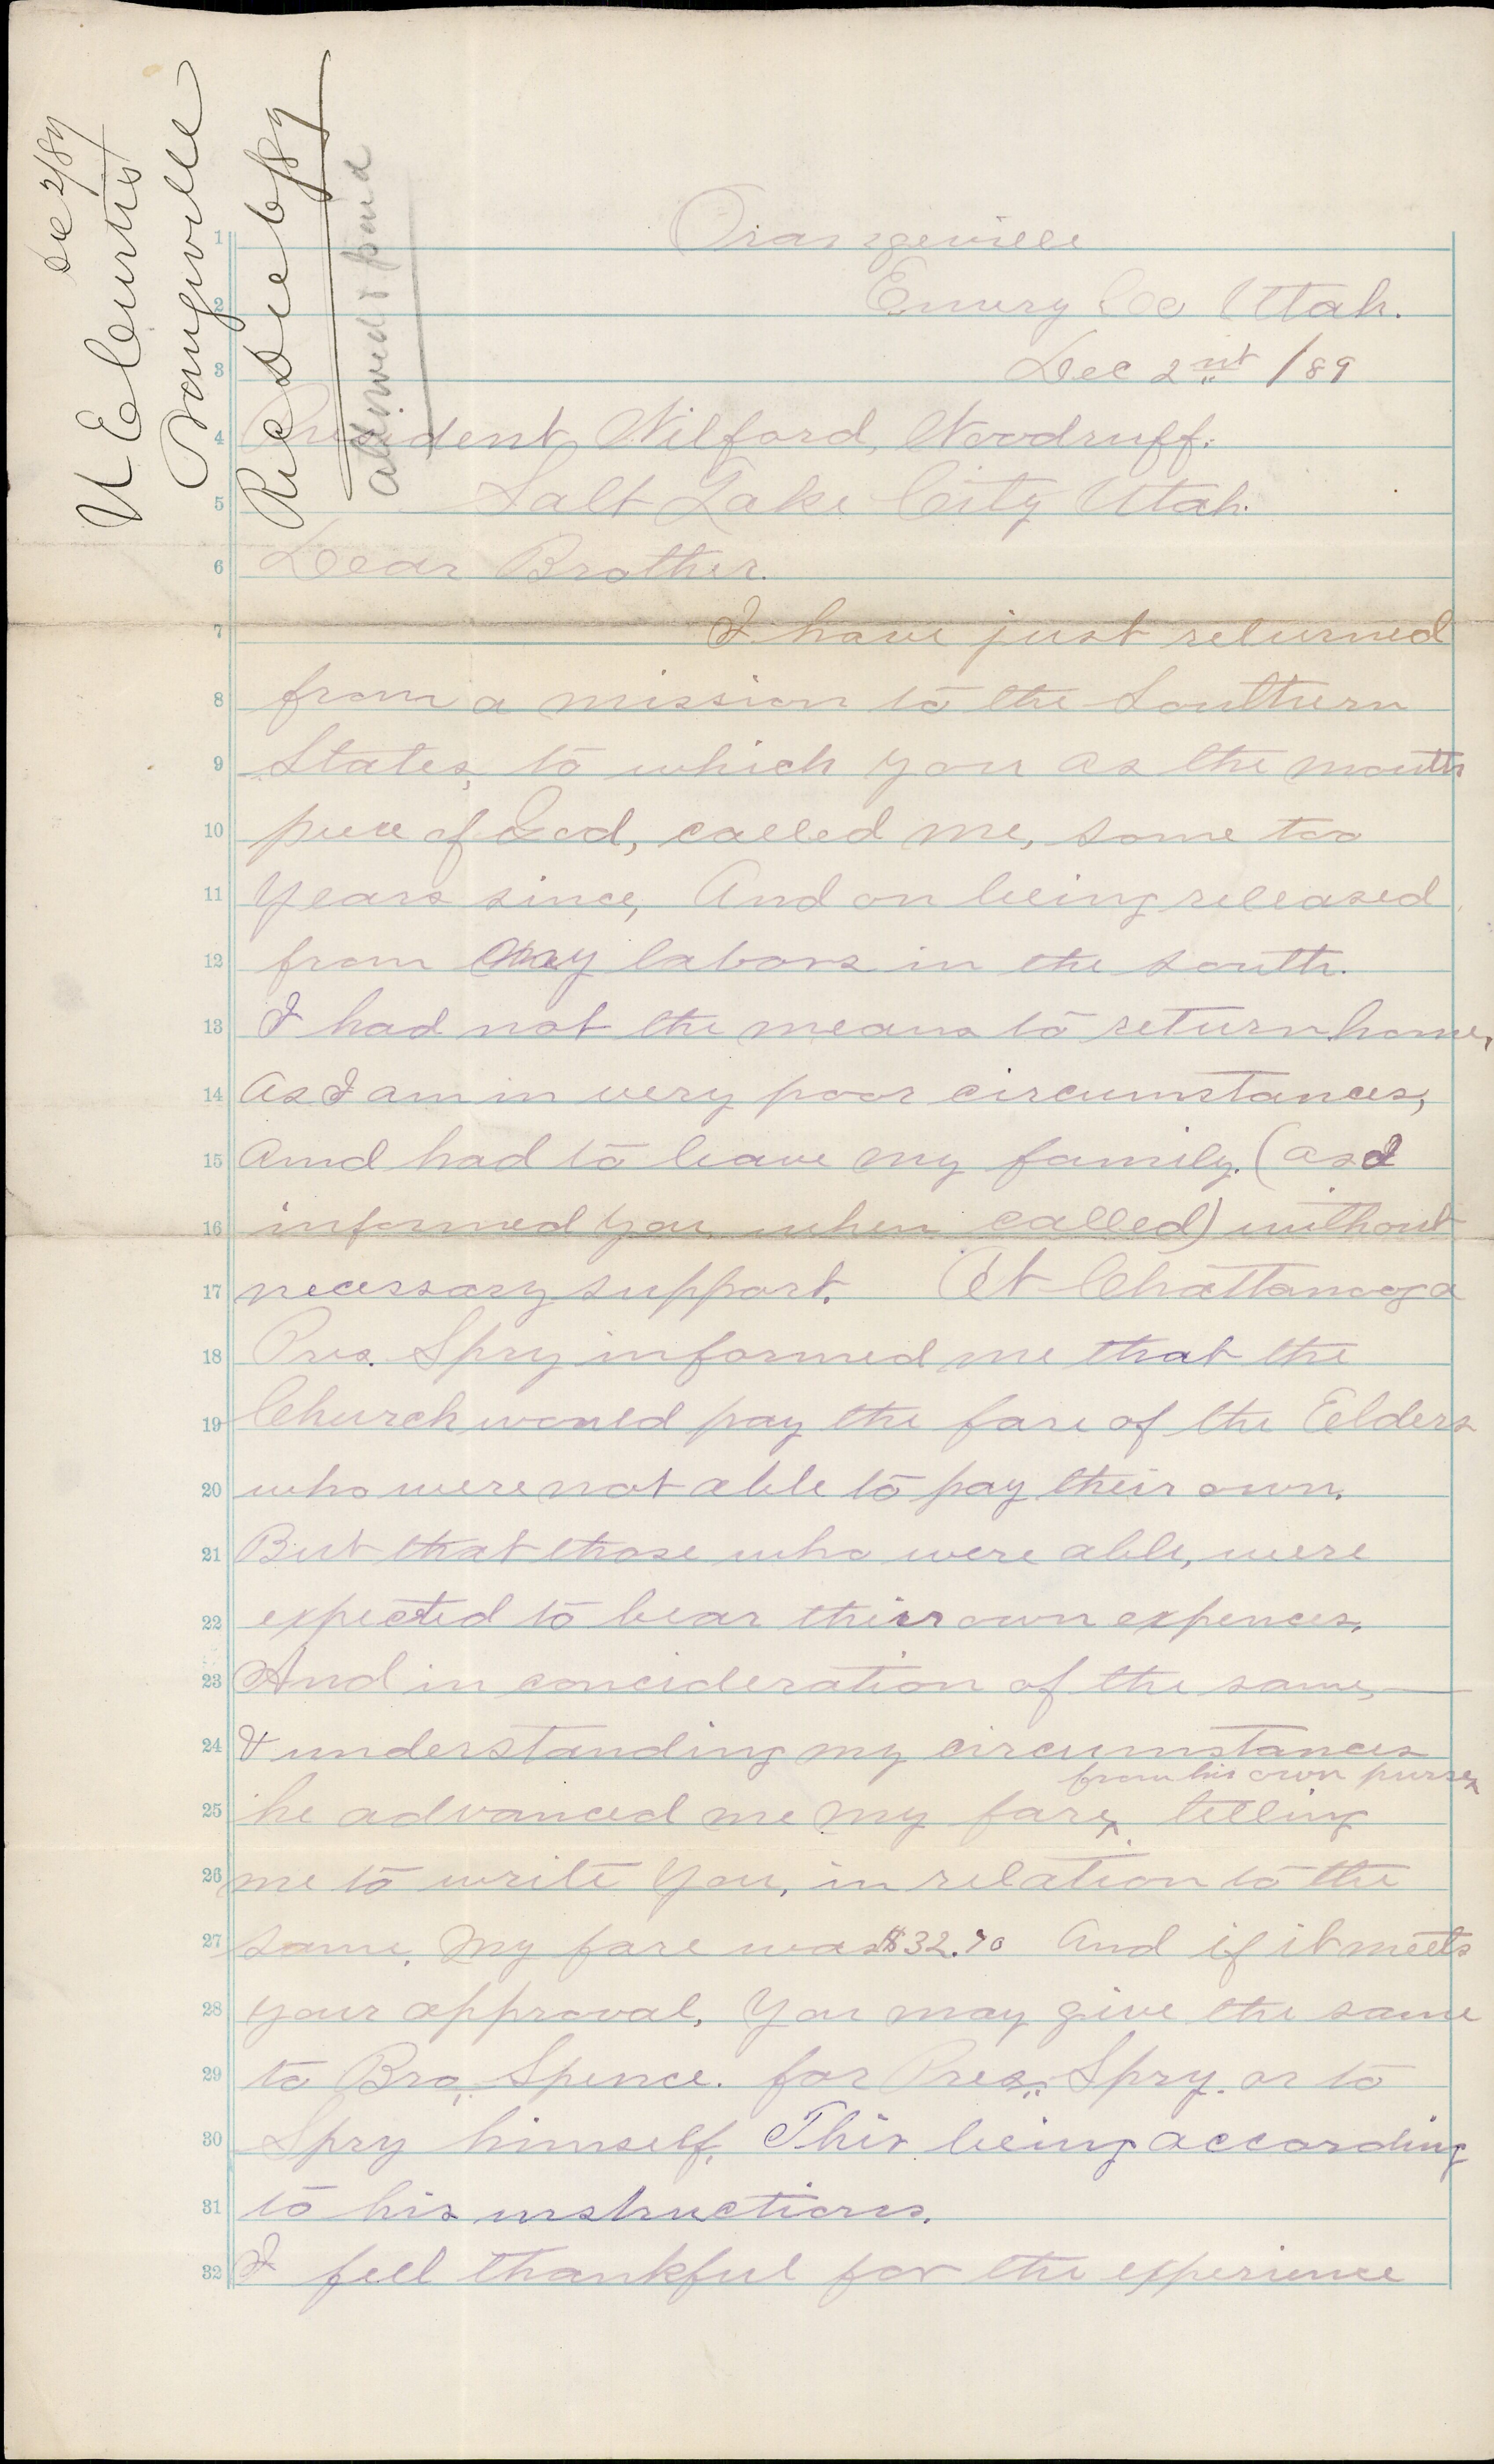 Dec 2/89
U E Curtis
Orangeville
Rec Dec 6/89
allowed & paid
Orangeville
Emery Co Utah.
Dec 2nt /89
President, Wilford, Woodruff.
Salt Lake City Utah.
Dear Brother.
I have just returned
from a mission to the Southern
States, to which you as the mouth
piece of God, called me, some too
years since, And on being released
from my labors in the south.
I had not the means to return home,
As I am in very poor circumstances,
And had to leave my family. (as I
informed you when called) without
necessary support. At Chattanooga
Pres. Spry informed me that the
Church would pay the fare of the Elders
who were not able to pay their own.
But that those who were able, were
expected to bear their own expences.
And in concideration of the same,
& understanding my circumstances
from his own purse,
he advanced me my fare, telling
me to write you, in relation to the
same. My fare was $32.70 And if it meets
your approval, You may give the same
to Bro. Spence. for Pres. Spry. or to
Spry himself. This being according
to his instructions.
I feel thankful for the experience
1
2
3
4
5
6
7
8
9
10
11
12
13
14
15
16
17
18
19
20
21
22
23
24
25
26
27
28
29
30
31
32